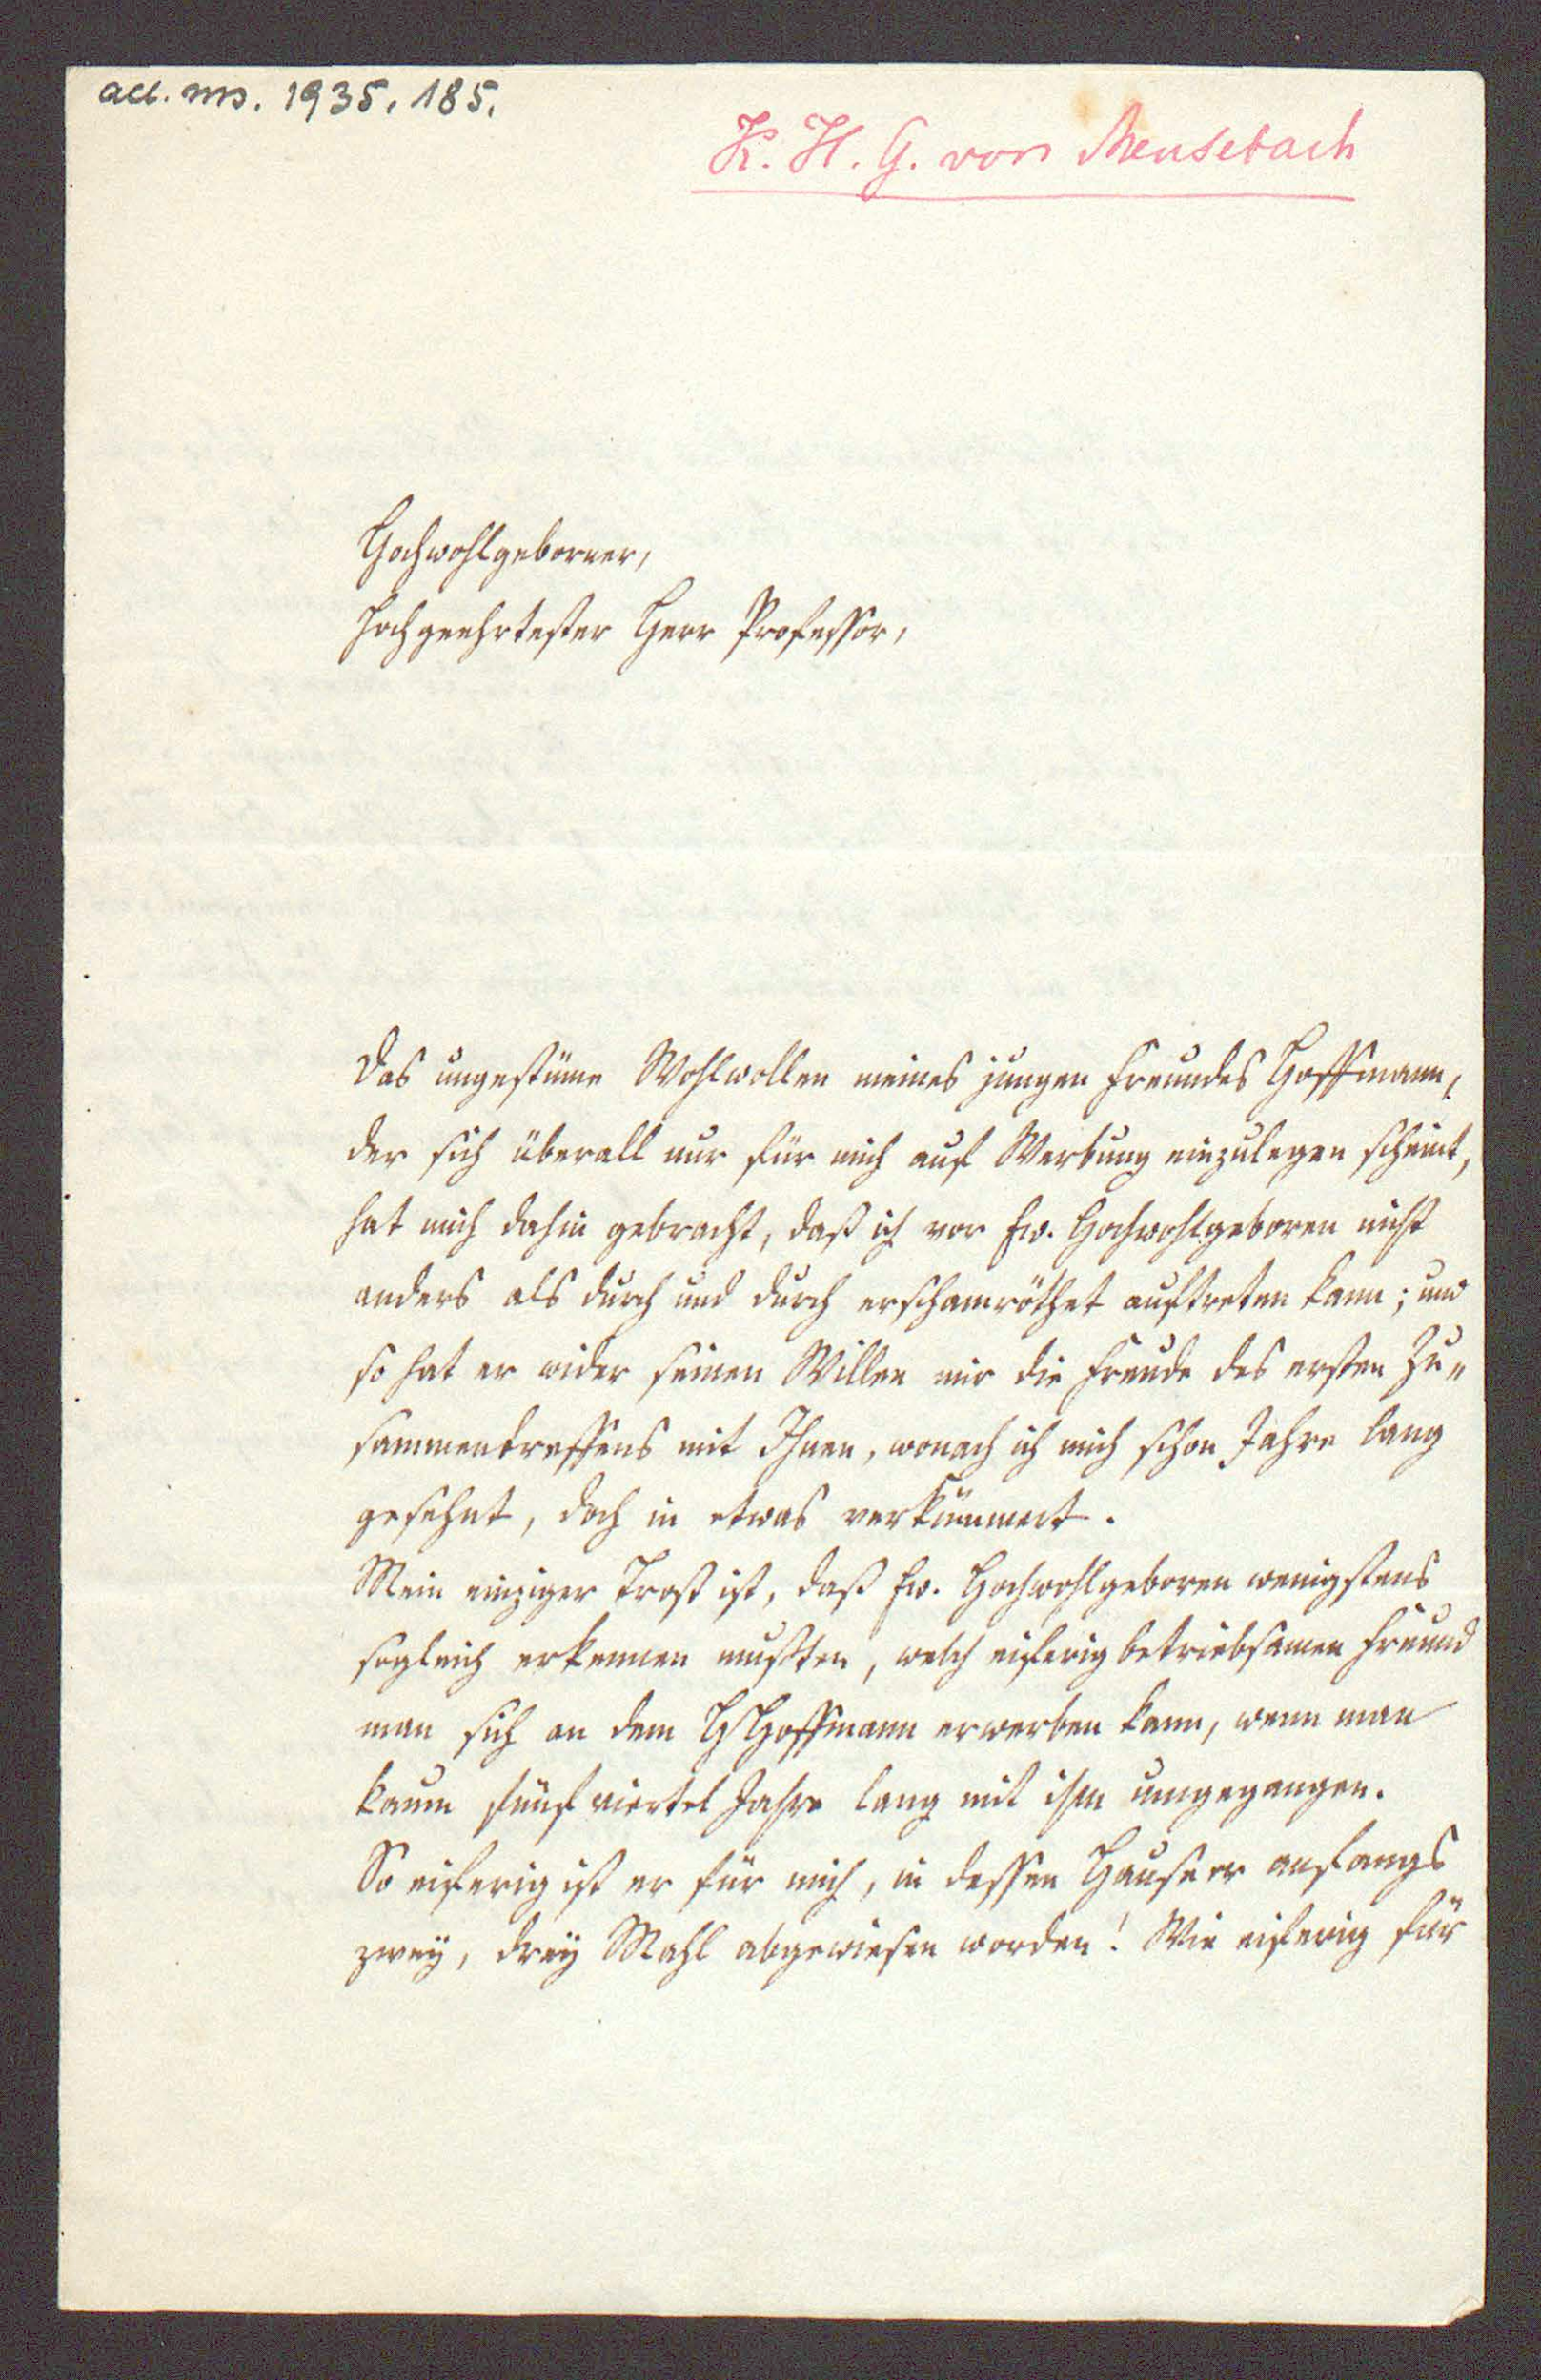 acc. ms. 1935. 185.
K. H. G. von Meusebach
Hochwohlgeborner,
Hochgeehrtester Herr Professor,
Das ungestüme Wohlwollen meines jungen Freundes Hoffmann,
der sich überall nur für mich auf Werbung einzulegen scheint,
hat mich dahin gebracht, daß ich vor Ew. Hochwohlgeboren nicht
anders als durch und durch erschamröthet auftreten kann; und
so hat er wider seinen Willen mir die Freude des ersten Zu-
sammentreffens mit Ihnen, wonach ich mich schon Jahre lang
gesehnt, doch in etwas verkümmert.
Mein einziger Trost ist, daß Ew. Hochwohlgeboren wenigstens
sogleich erkennen mußten, welch eiferig betriebsamen Freund
man sich an dem H Hoffmann erwerben kann, wenn man
kaum fünf viertel Jahre lang mit ihm umgegangen.
So eiferig ist er für mich, in dessen Hause er anfangs
zwey, drey Mahl abgewiesen worden! Wie eiferig für